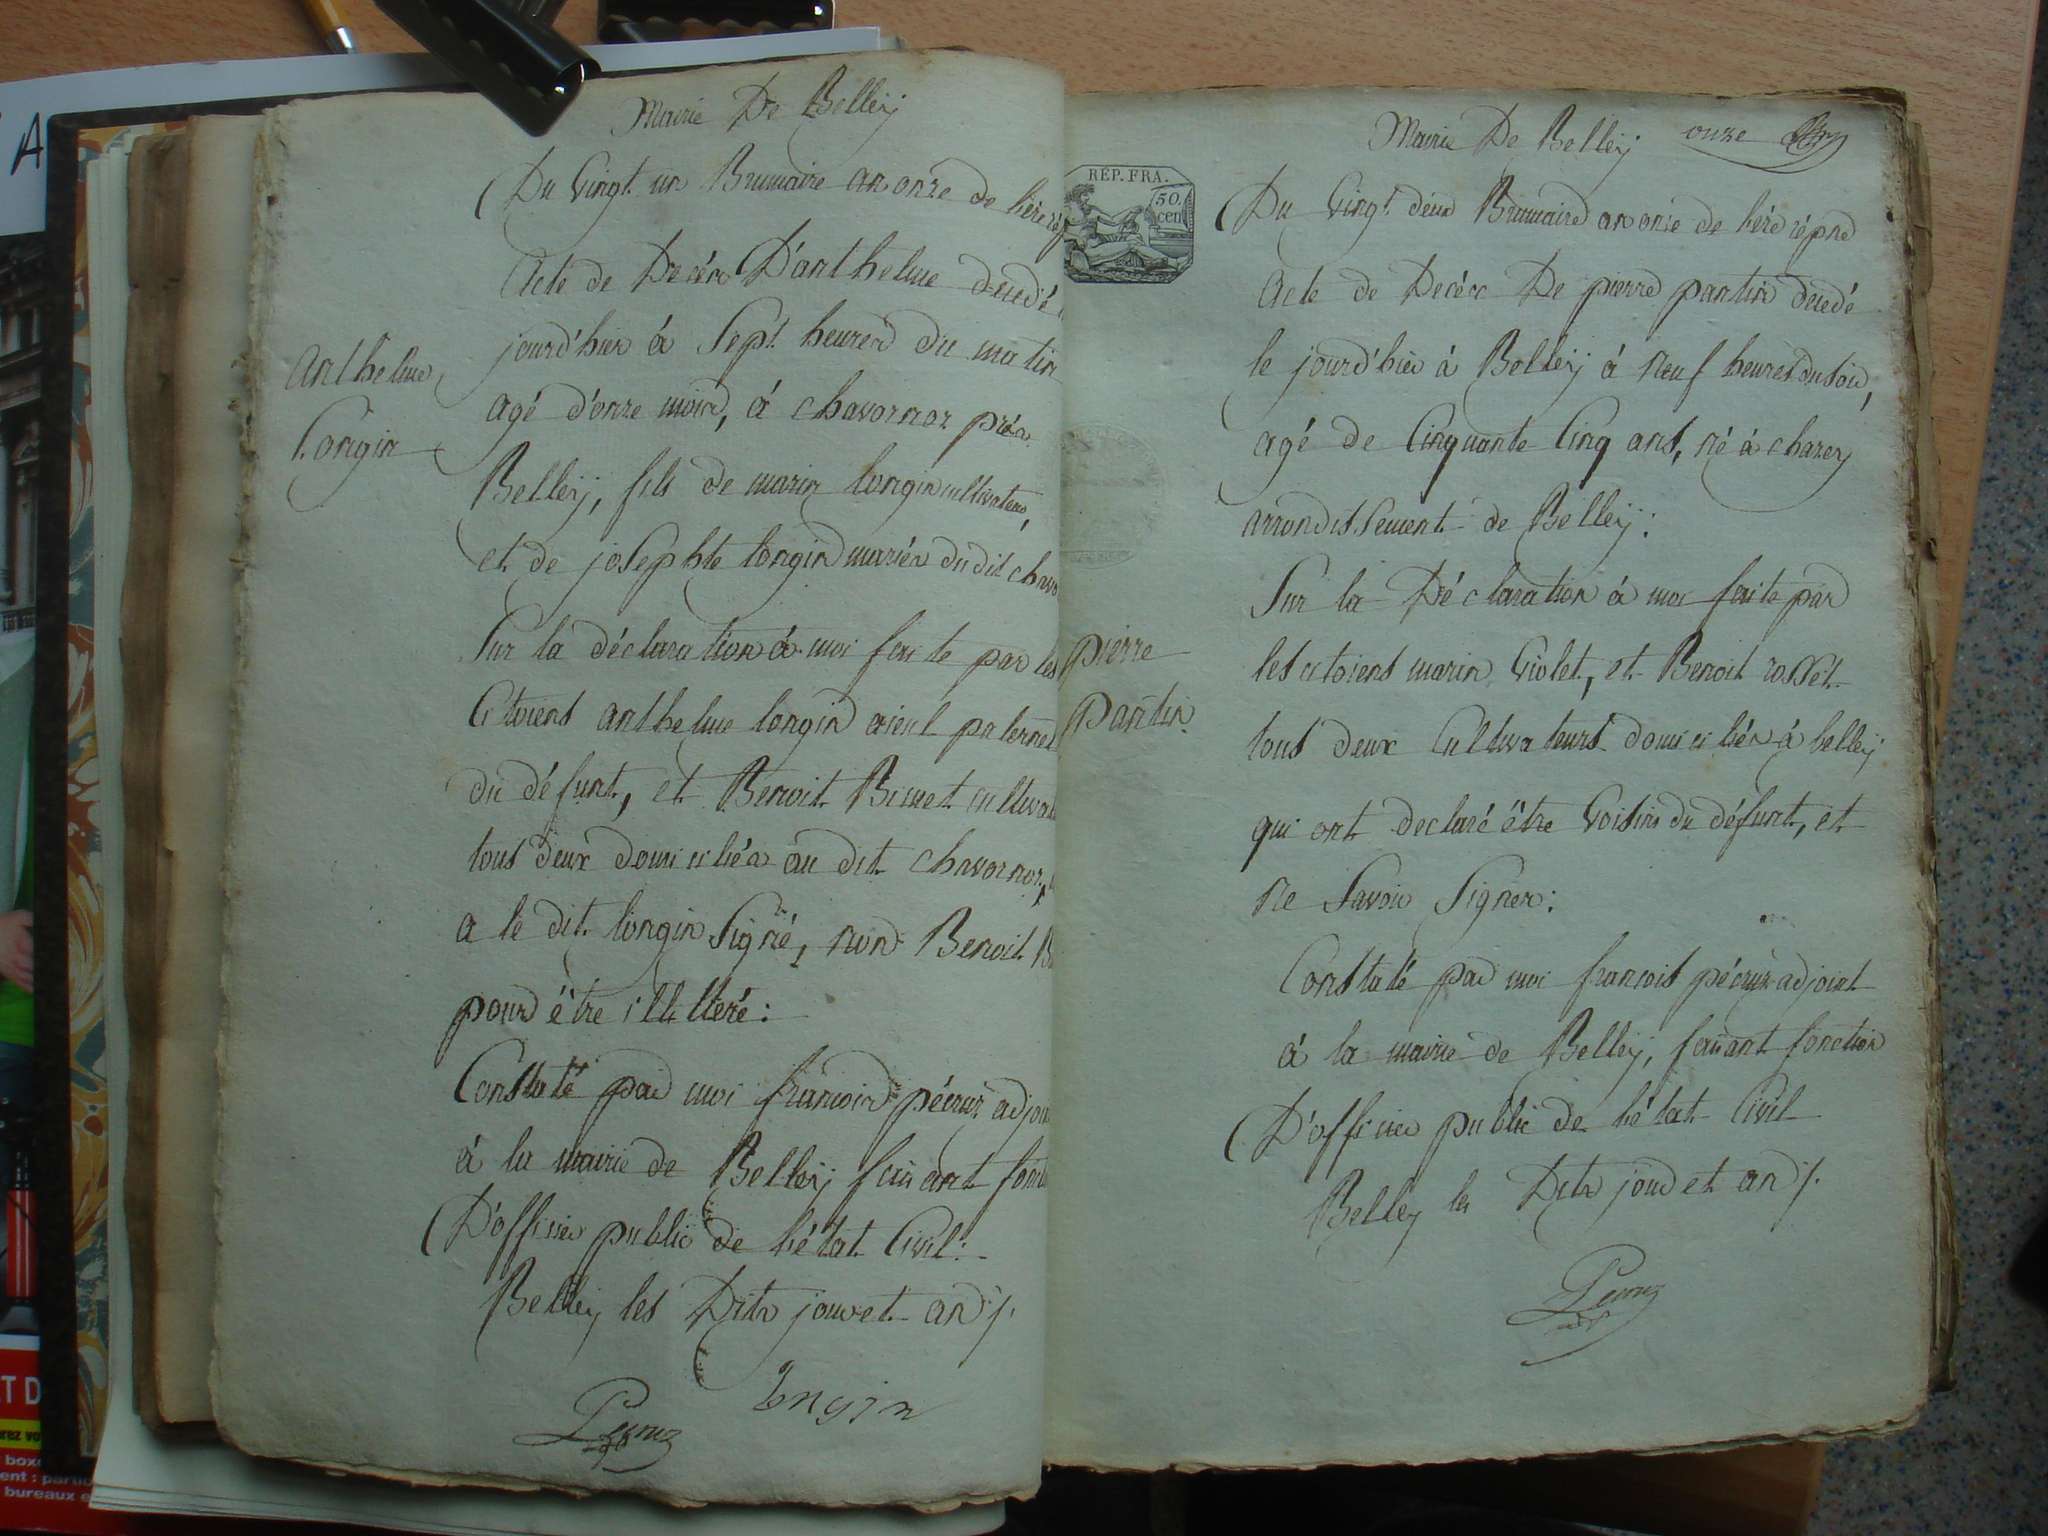 Mairie De Belleÿ
Du Vingt un Brumaire an onze de l'ère rép
Acte de Décès D'anthelme decedé
jourd'hier à Sept heures du matin
agé d'onze mois, à chavornoz près
Belleÿ, fils de marin longin cultivateur,
et de josephte longin mariés du dit chavo
Sur la déclaration à moi faite par les
Citoiens anthelme longin aieul paternel
du défunt, et Benoit Bimet cultiva
tous deux domiciliés au dit chavornoz,
a le dit longin Signé, non Benoit B
pour être illitteré :
Constaté par moi françois pécruz adjoi
à la mairie de Belleÿ faisant fonc
D'officier public de l'état Civil :
Belleÿ les Dits jour et an ./.
Longin
Pecruz
anthelme
Longin
Mairie De Belleÿ
onze
RÉP. FRA.
50.
cen
Du Vingt deux Brumaire an onze de l'ère répne
Acte de Décès De pierre pantin decedé
le jourd'hier à Belleÿ à neuf heures du soir,
agé de Cinquante Cinq ans, né à chazey
arrondissement de Belleÿ :
Sur la Déclaration à moi faite par
les citoiens marin Violet, et Benoit rosset
tous deux Cultivateurs domiciliés à belleÿ
qui ont declaré être Voisins du défunt, et
ne Savoir Signer :
Constaté par moi françois pécruz adjoint
à la mairie de Belleÿ, faisant fonction
D'officier public de l'état Civil
Belleÿ les Dits jour et an ./.
Pecruz
pierre
Pantin.
A
ET D
boxe
ent : partic
bureaux e